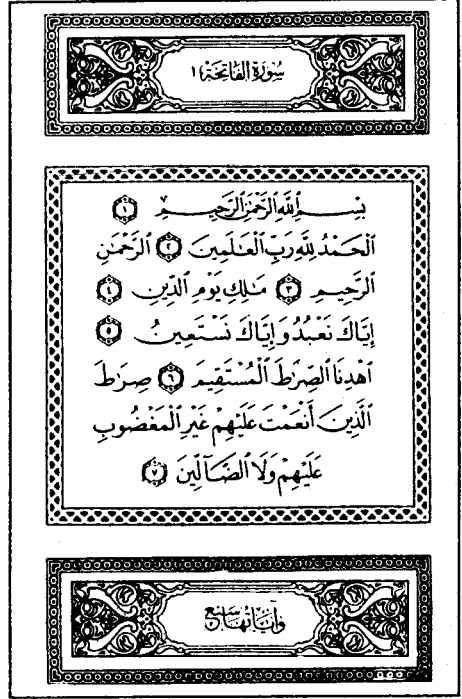 سُورَةُ الْفَاتِحَةِ ١
بِسْمِ ٱللَّهِ ٱلرَّحْمَٰنِ ٱلرَّحِيمِ ١
ٱلْحَمْدُ لِلَّهِ رَبِّ ٱلْعَٰلَمِينَ ٢ ٱلرَّحْمَٰنِ
ٱلرَّحِيمِ ٣ مَٰلِكِ يَوْمِ ٱلدِّينِ ٤
إِيَّاكَ نَعْبُدُ وَإِيَّاكَ نَسْتَعِينُ ٥
ٱهْدِنَا ٱلصِّرَٰطَ ٱلْمُسْتَقِيمَ ٦ صِرَٰطَ
ٱلَّذِينَ أَنْعَمْتَ عَلَيْهِمْ غَيْرِ ٱلْمَغْضُوبِ
عَلَيْهِمْ وَلَا ٱلضَّآلِّينَ ٧
وَآيَاتُهَا سَبْعٌ